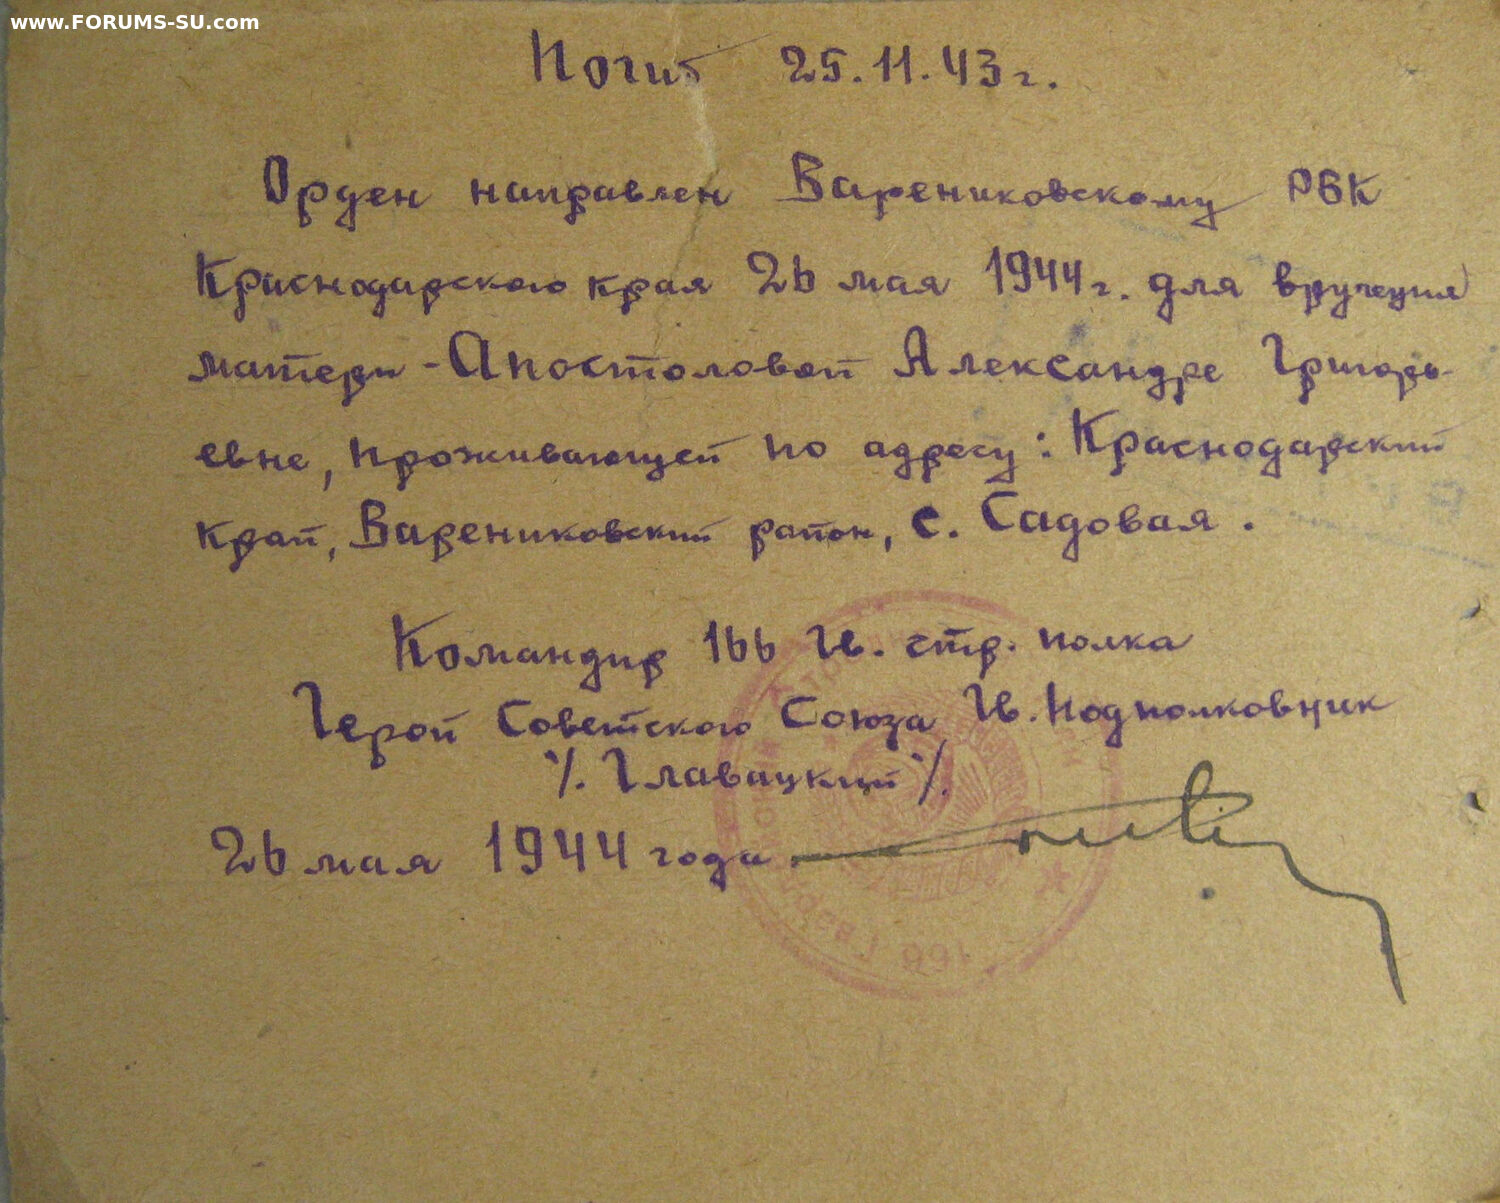 www.FORUMS-SU.com
Погиб 25.11.43 г.
Орден направлен Варениковскому РВК
Краснодарского края 26 мая 1944 г. для вручения
матери - Апостоловой Александре Григорь-
евне, проживающей по адресу: Краснодарский
край, Варениковский район, с. Садовая.
Командир 166 Гв. стр. полка
Герой Советского Союза Гв. Подполковник
/. Главацкий /.
26 мая 1944 года.
166 Гвард